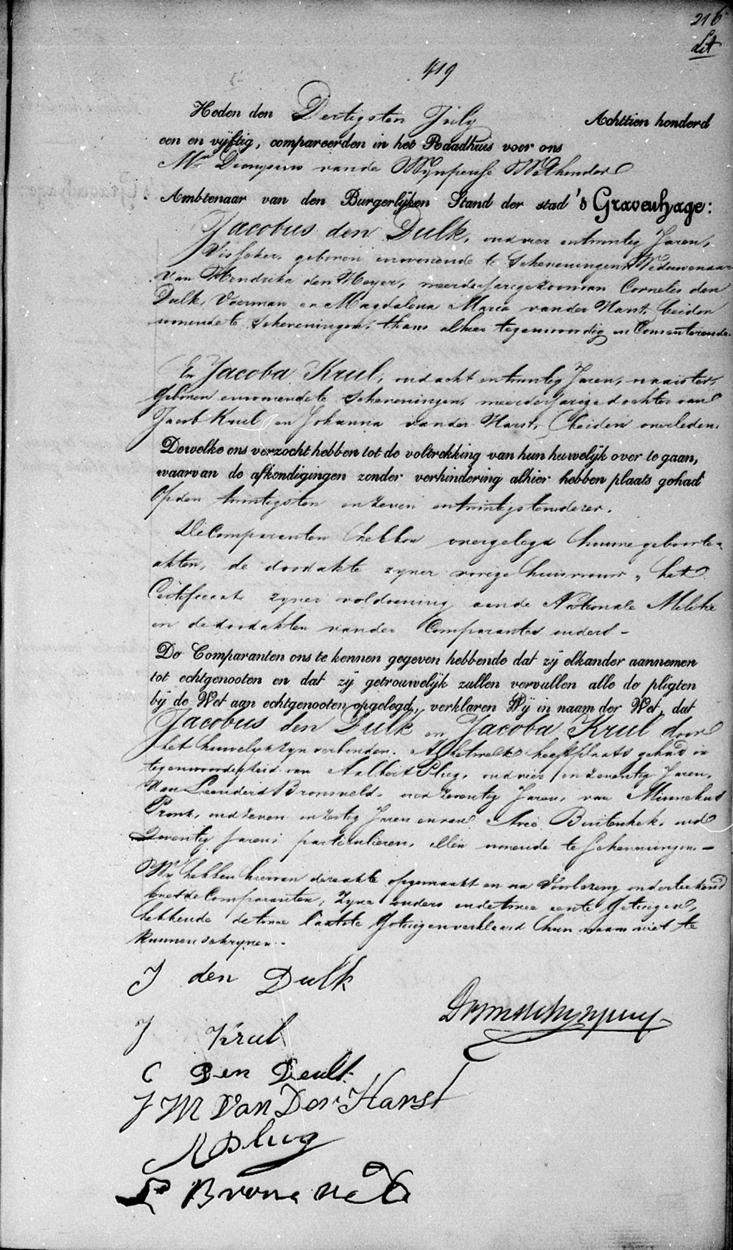 216
419
Heden den Dertigsten July Achttien honderd
een en vijftig, compareerden in het Raadhuis voor ons
Mr Dionysius van de Wynpersse Wethouder
Ambtenaar van den Burgerlijken Stand der stad 's Gravenhage:
Jacobus den Dulk, oud vier en twintig Jaren,
Visscher, geboren en wonende te Scheveningen, Weduwenaar
van Hendrika den Heyer, meerderjarige zoon van Cornelis den
Dulk, Voerman en Magdalena Maria van der Harst, beiden
wonende te Scheveningen, thans alhier tegenwoordig en Consenterende.
En Jacoba Krul, oud acht en twintig Jaren, naaister,
geboren en wonende te Scheveningen, meerderjarige dochter van
Jacob Krul en Johanna van der Harst, beiden overleden.
Dewelke ons verzocht hebben tot de voltrekking van hun huwelijk over te gaan,
waarvan de afkondigingen zonder verhindering alhier hebben plaats gehad
op den twintigsten en zeven en twintigsten dezer.
De Comparanten hebben overgelegd hunne geboorte-
akten, de doodakte zyner vorige huisvrouw, het
Certificaat zyner voldoening aan de Nationale Militie
en de doodakten van der Comparantes ouders -
De Comparanten ons te kennen gegeven hebbende dat zij elkander aannemen
tot echtgenooten en dat zij getrouwelijk zullen vervullen alle de pligten
bij de Wet aan echtgenooten opgelegd, verklaren Wij in naam der Wet, dat
Jacobus den Dulk en Jacoba Krul door
het huwelyk zyn verbonden. Al hetwelk heeft plaats gehad in
tegenwoordigheid van Aalbert Plug, oud vier en zeventig Jaren,
van Leendert Bronsveld, oud zeventig Jaren, van
Pronk, oud zeven en zestig Jaren en van Arie Buitenhek, oud
zeventig Jaren, particulieren, allen wonende te Scheveningen.-
Wy hebben hiervan deze akte opgemaakt en na Voorlezing onderteekend
met de Comparanten, zyne ouders en de twee eerste Getuigen,
hebbende de twee laatste Getuigen verklaard hun naam niet te
kunnen schryven.-
J den Dulk
J Krul
C Den Deulk
M Van Der Harst
A Plug
L Bronsveld